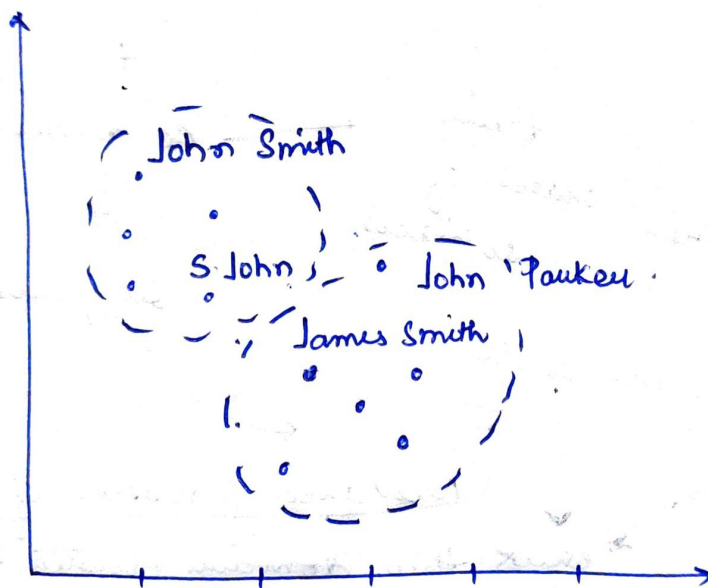 John Smith
S. John
John Parker
James Smith